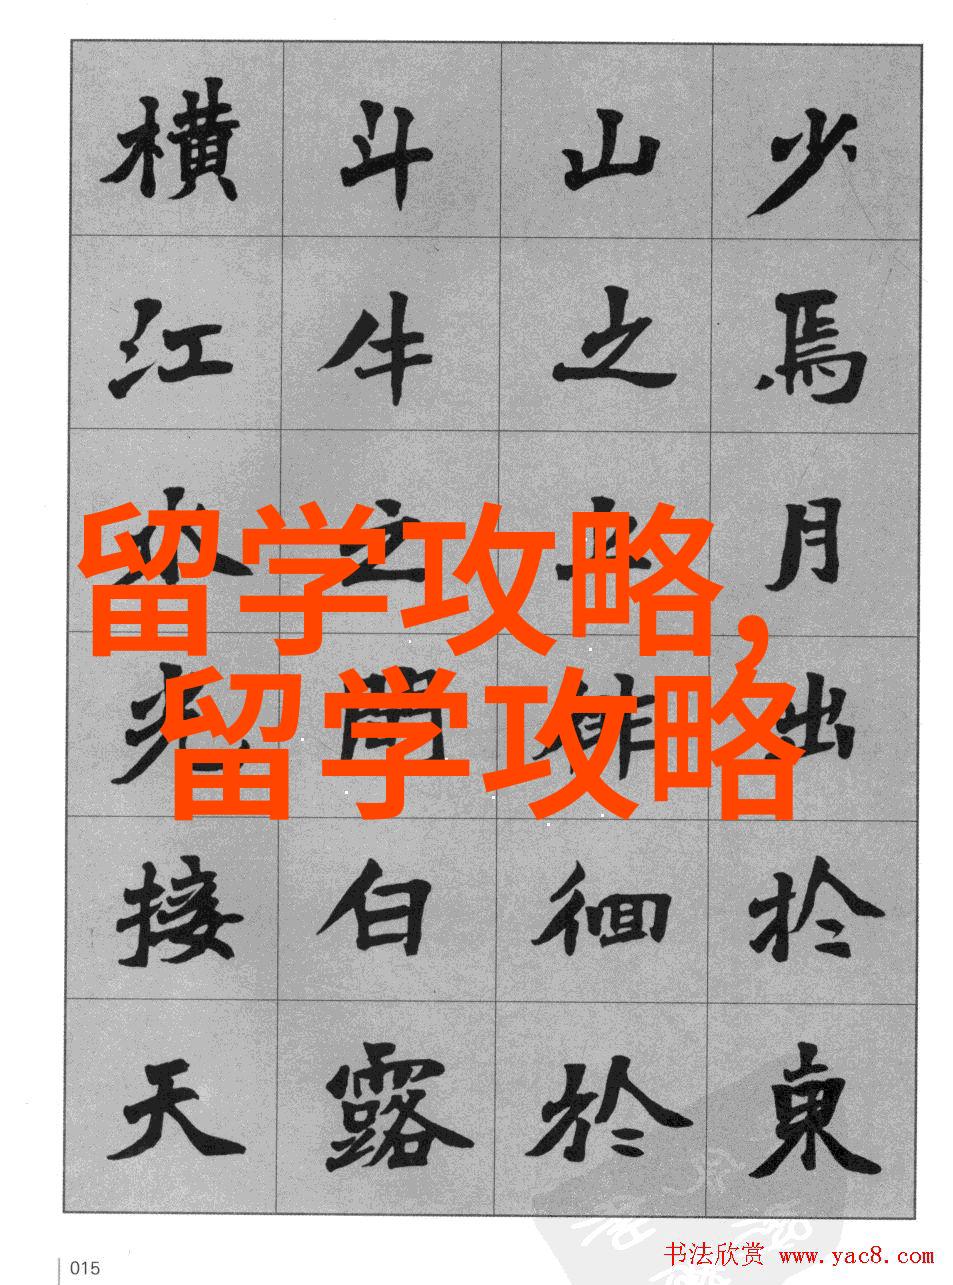 少焉月出於東
山之上徘徊於
斗牛之間白露
橫江水光接天
留学攻略,
留学攻略
015
书法欣赏 www.yac8.com